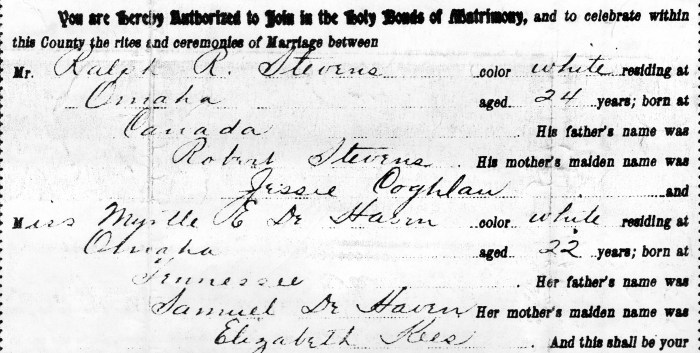 You are Hereby Authorized to Join in the Holy Bonds of Matrimony, and to celebrate within
this County the rites and ceremonies of Marriage between
Mr. Ralph R. Stevens color white residing at
Omaha aged 24 years; born at
Canada His father's name was
Robert Stevens His mother's maiden name was
Jessie Coghlan and
Miss Myrtle E De Haven color white residing at
Omaha aged 22 years; born at
Tennessee Her father's name was
Samuel De Haven Her mother's maiden name was
Elizabeth Kees And this shall be your